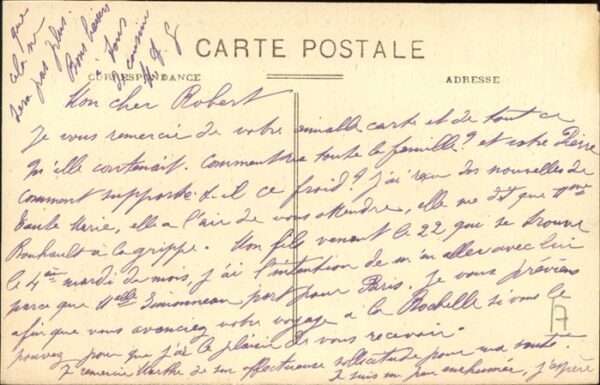 CARTE POSTALE
CORRESPONDANCE
ADRESSE
Mon cher Robert
Je vous remercie de votre aimable carte et de tout ce
qu'elle contenait. Comment va toute la famille? et votre Pierre
comment supporte-t-il ce froid? J'ai reçu des nouvelles de
tante Marie, elle a l'air de vous attendre, elle me dit que Mme
Rouhault a la grippe. Mon fils venant le 22 qui se trouve
le 4ème mardi du mois, j'ai l'intention de m'en aller avec lui
parce que Melle Simonneau part pour Paris. Je vous préviens
afin que vous avanciez votre voyage à la Rochelle si vous le
pouvez pour que j'ai le plaisir de vous recevoir.
Je remercie Marthe de son affectueuse sollicitude pour ma santé
je suis un peu enrhumée, j'espère
que
cela ne
sera pas plus.
Bons baisers
à tous